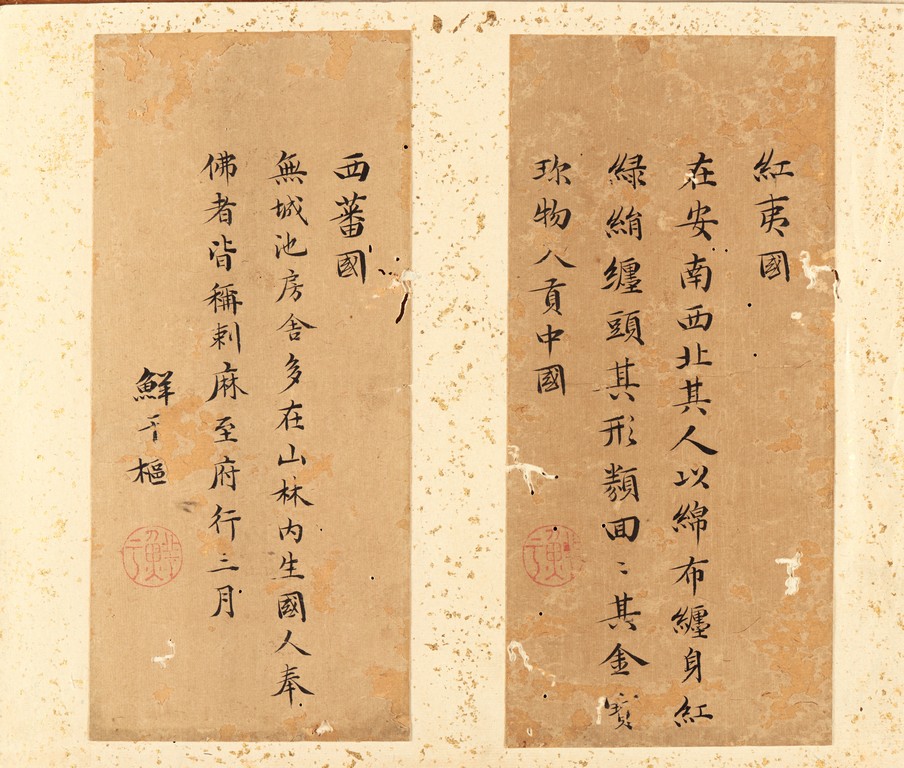 紅夷國
在安南西北其人以綿布纏身紅
綠絹纏頭其形類回〻其金寶
珎物入貢中國
西蕃國
無城池房舍多在山林内生國人奉
佛者皆稱剌麻至府行三月
鮮于樞